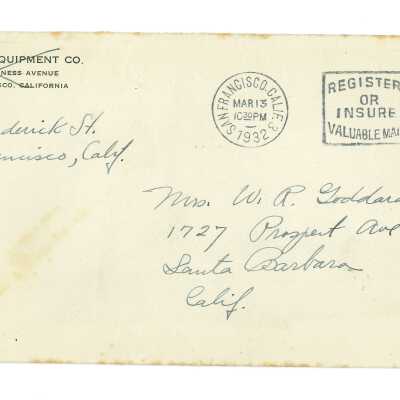 QUIPMENT CO.
NESS AVENUE
SCO, CALIFORNIA
SAN FRANCISCO, CALIF. 3
MAR 13
10 30 PM
1932
REGISTER
OR
INSURE
VALUABLE MAI
derick St.
ancisco, Calif.
Mrs. W. R. Goddard
1727 Prospect Ave
Santa Barbara
Calif.